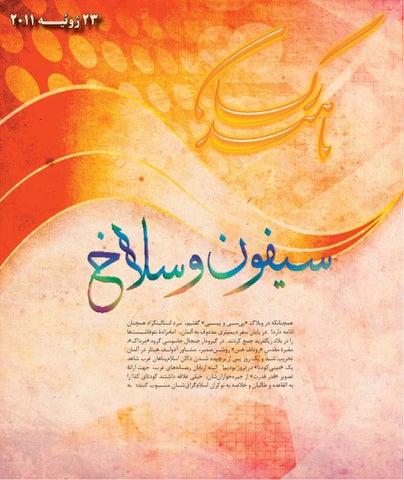 ۲۳ ژوئیـــه ۲۰۱۱
سیفون و سلاخ
همچنانکه در وبلاگ «بی‌بی‌سی و پیسی» گفتیم، نبرد استالینگراد همچنان
ادامه دارد! در پایان سفر دیمیتری مدودف به آلمان، امامزادهٔ نئوفاشیست‌ها
را در بلاد زیگفرید جمع کردند. در گیرودار جنجال جاسوسی گروه «مرداک»،
مقبرهٔ مقدس «رودلف هس» روشن‌ضمیر، مشاور آدولف هیتلر در آلمان
تخریب شد؛ و یک روز پس از برچیده شدن دکان اسلام‌پناهان غرب شاهد
یک «مینی‌کودتا» در نروژ بودیم! البته اربابان رسانه‌های غرب، جهت ارائهٔ
تصویر «قدر قدرت» از جیره‌خواران‌شان، خیلی علاقه داشتند کودتای کذا را
به القاعده و طالبان و خلاصه به نوکران اسلام‌گرای‌شان منسوب کنند؛ به